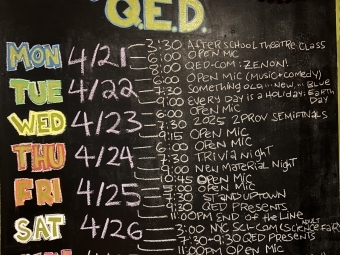 Q.E.D.
MON 4/21
3:30 AFTER SCHOOL THEATRE CLASS
6:00 OPEN MIC
8:00 QED-COM: ZENON!
TUE 4/22
6:00 OPEN MIC (MUSIC+COMEDY)
7:30 SOMETHING OLD... NEW... BLUE
9:00 EVERY DAY IS A HOLIDAY: EARTH DAY
WED 4/23
6:00 OPEN MIC
7:30 2025 2PROV SEMIFINALS
9:15 OPEN MIC
THU 4/24
6:00 OPEN MIC
7:30 TRIVIA NIGHT
9:00 NEW MATERIAL NIGHT
FRI 4/25
OPEN MIC
OPEN MIC
7:30 STAND UPTOWN
9:30 QED PRESENTS
11:00PM END OF THE LINE
SAT 4/26
3:00 NYC SCI-COM (ADULT SCIENCE FAIR
7:30-9:30 QED PRESENTS
11:00PM OPEN MIC